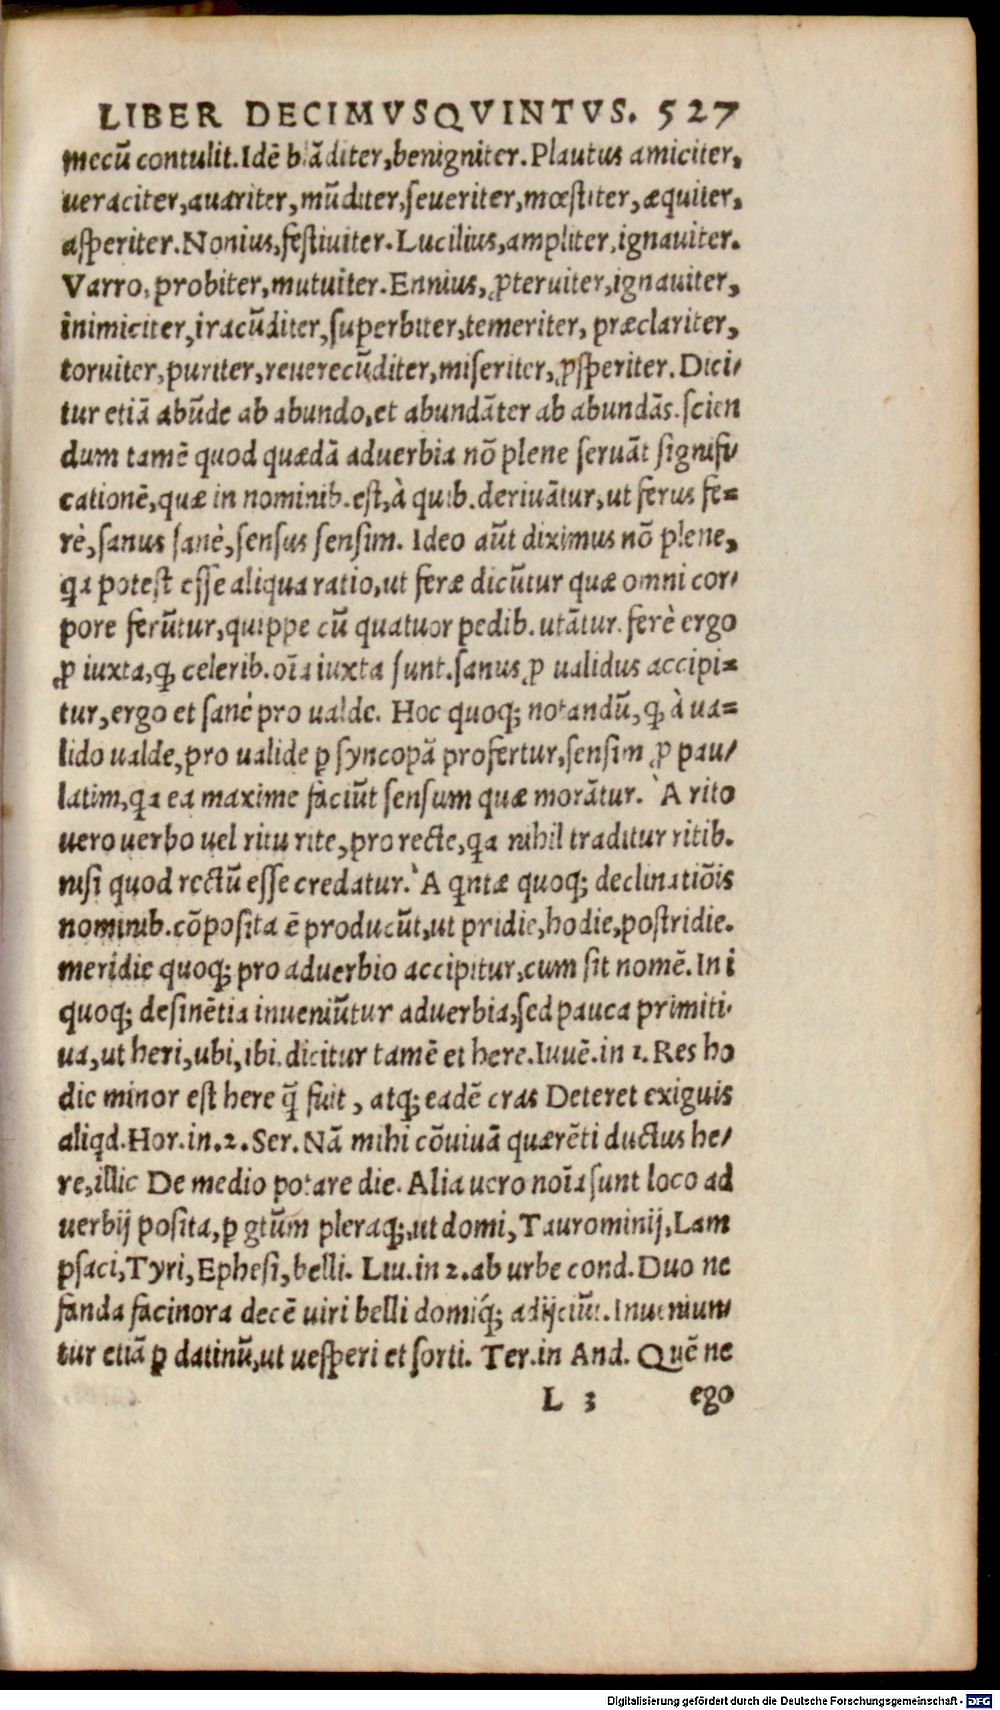 LIBER DECIMVSQVINTVS. 527
mecū contulit. Idē blāditer, benigniter. Plautus amiciter,
ueraciter, auariter, mūditer, seueriter, mœstiter, æquiter,
asperiter. Nonius, festiuiter. Lucilius, ampliter, ignauiter.
Varro, probiter, mutuiter. Ennius, ꝓteruiter, ignauiter,
inimiciter, iracūditer, superbiter, temeriter, præclariter,
toruiter, puriter, reuerecūditer, miseriter, ꝓsperiter. Dici/
tur etiā abūde ab abundo, et abundāter ab abundās. scien
dum tamē quod quædā aduerbia nō plene seruāt signifi/
cationē, quæ in nominib. est, à quib. deriuātur, ut ferus fe=
rè, sanus sanè, sensus sensim. Ideo aūt diximus nō plene,
qa potest esse aliqua ratio, ut feræ dicūtur quæ omni cor/
pore ferūtur, quippe cū quatuor pedib. utātur. ferè ergo
ꝓ iuxta, ꝙ celerib. oīa iuxta sunt. sanus ꝓ ualidus accipi=
tur, ergo et sanè pro ualde. Hoc quoq; notandū, ꝙ à ua=
lido ualde, pro ualide ꝑ syncopā profertur, sensim ꝓ pau/
latim, qa ea maxime faciūt sensum quæ morātur. `A rito
uero uerbo uel ritu rite, pro recte, qa nihil traditur ritib.
nisi quod rectū esse credatur. `A qntæ quoq; declinatiōis
nominib. cōposita ē producūt, ut pridie, hodie, postridie.
meridie quoq; pro aduerbio accipitur, cum sit nomē. In i
quoq; desinētia inueniūtur aduerbia, sed pauca primiti/
ua, ut heri, ubi, ibi. dicitur tamē et here. Iuuē. in 1. Res ho
die minor est here q̄ fuit, atq; eadē cras Deteret exiguis
aliqd. Hor. in. 2. Ser. Nā mihi cōuiuā quærēti ductus he/
re, illic De medio potare die. Alia uero noīa sunt loco ad
uerbij posita, ꝑ gtūm pleraq;, ut domi, Taurominij, Lam
psaci, Tyri, Ephesi, belli. Liu. in 2. ab urbe cond. Duo ne
fanda facinora decē uiri belli domiq́; adijciūt. Inuenium/
tur etiā ꝑ datinū, ut uesperi et sorti. Ter. in And. Quē ne
L 3 ego
Digitalisierung gefördert durch die Deutsche Forschungsgemeinschaft - DFG